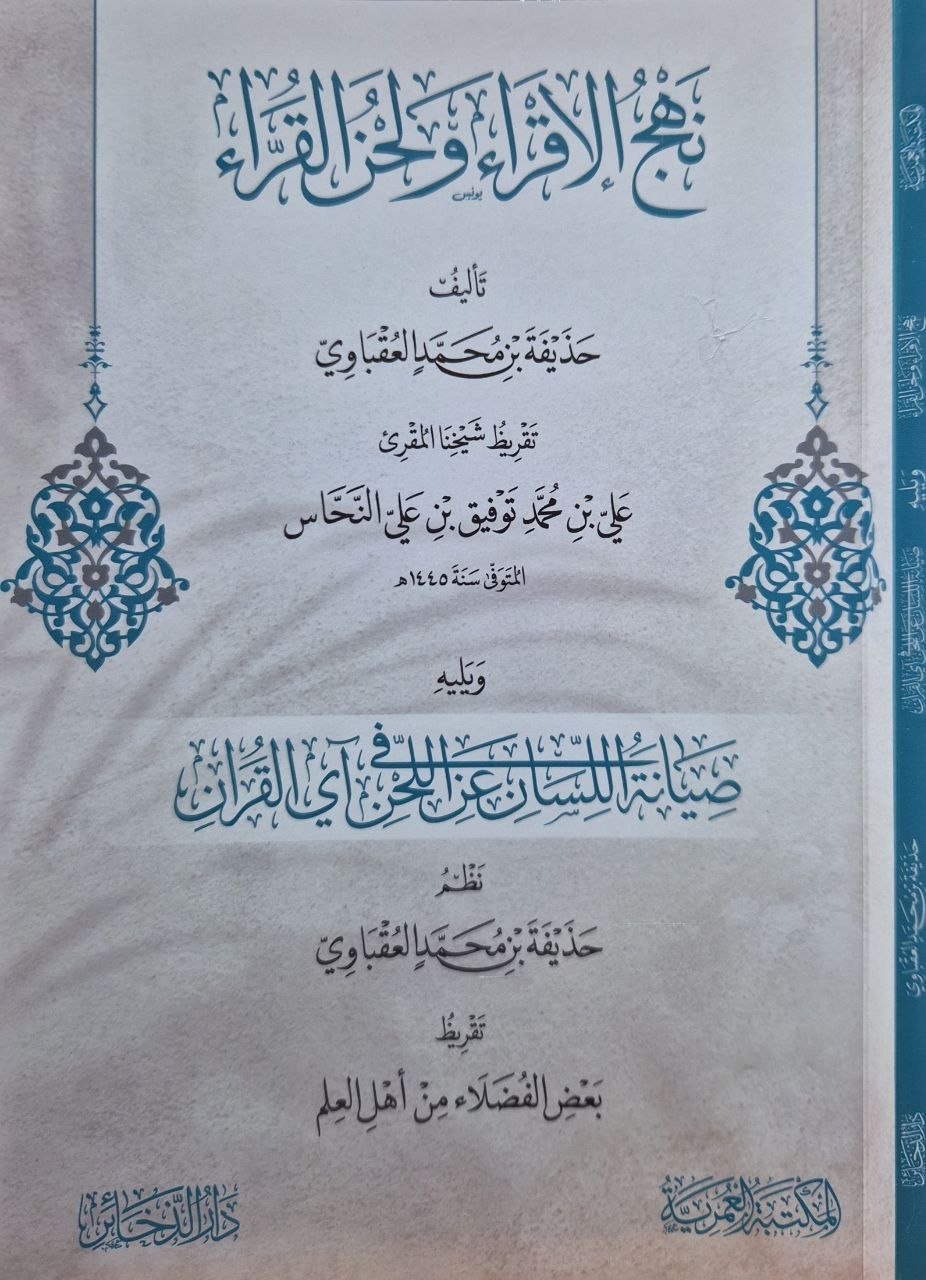 نَهْجُ الإِقْرَاءِ وَلَحْنُ القُرَّاءِ
يونس
تَأْلِيفُ
حُذَيْفَةَ بْنِ مُحَمَّدٍ العُقْبَاوِيِّ
تَقْرِيظُ شَيْخِنَا المُقْرِئ
عَلِيّ بْنِ مُحَمَّدِ تَوْفِيق بْنِ عَلِيّ النَّحَّاس
المُتَوَفَّى سَنَةَ ١٤٤٥هـ
وَيَلِيهِ
صِيَانَةُ اللِّسَانِ عَنِ اللَّحْنِ فِي آيِ القُرَانِ
نَظْمُ
حُذَيْفَةَ بْنِ مُحَمَّدٍ العُقْبَاوِيِّ
تَقْرِيظُ
بَعْضِ الفُضَلَاء مِنْ أَهْلِ العِلم
المَكْتَبَةُ العُمَرِيَّةُ
دَارُ الذَّخَائِرِ
المكتبة العمرية
نهج الإقراء ولحن القراء
ويليه
صيانة اللسان عن اللحن في آي القران
حذيفة بن محمد العقباوي
دار الذخائر